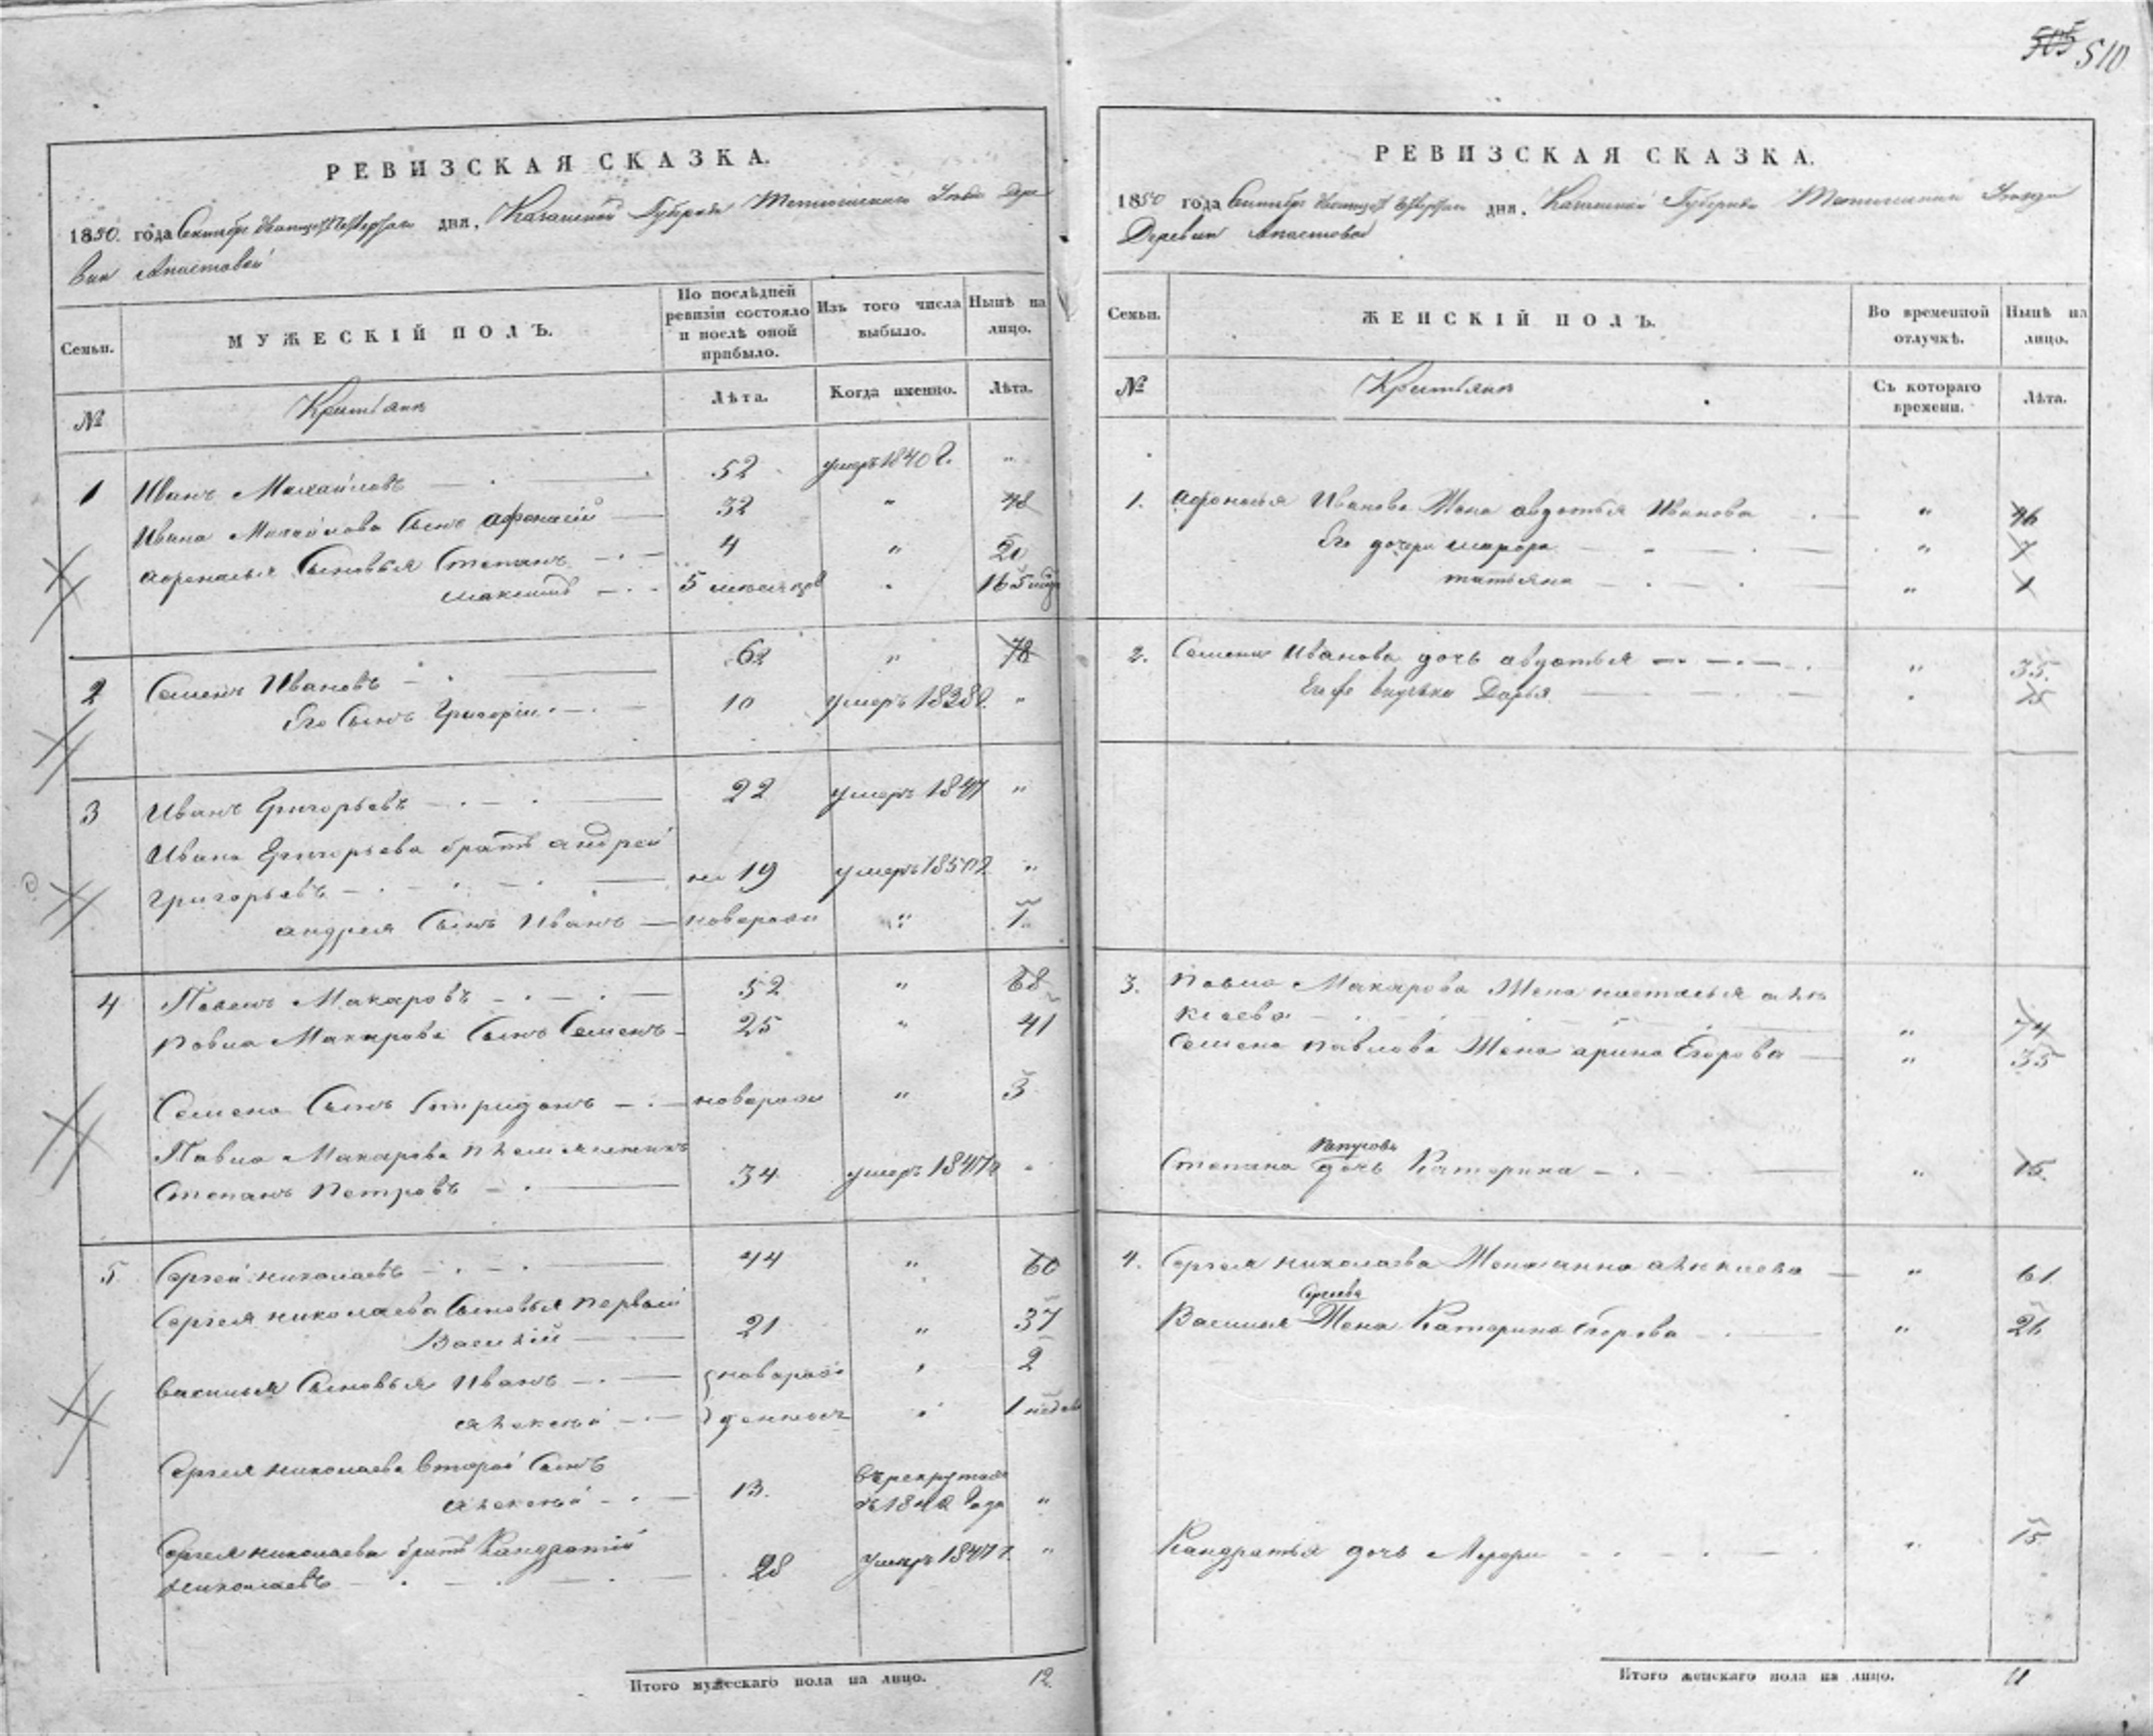 505 510
РЕВИЗСКАЯ СКАЗКА.
1850. года Сентября двадцать четвертаго дня, Казанской Губернии Тетюшскаго Уезда Дере
вни Апастовой
Семьи.
МУЖЕСКІЙ ПОЛЪ.
По послѣдней ревизіи состояло и послѣ оной прибыло.
Изъ того числа выбыло.
Нынѣ на лицо.
№
Крестьяне
Лѣта.
Когда именно.
Лѣта.
1 Иванъ Михайловъ 52 умеръ 1840 г. "
Ивана Михайлова Сынъ афонасій 32 " 48
афонасья Сыновья Степанъ 4 " 20
максимъ 5 месяцов " 16 5
2 Семенъ Ивановъ 62 " 78
Его Сынъ Григорій 10 умеръ 1838 г. "
3 Иванъ Григорьевъ 22 умеръ 1847 "
Ивана Григорьева братъ андрей
григорьевъ 19 умеръ 1850 г "
андрея Сынъ Иванъ новорож " 1
4 Павелъ Макаровъ 52 " 68
павла Макарова Сынъ Семенъ 25 " 41
Семена Сынъ Спиридонъ новорож " 3
Павла Макарова племянникъ
Степанъ Петровъ 34 умеръ 1847 г "
5 Сергей николаевъ 44 " 60
Сергея николаева Сыновья первый
Василій 21 " 37
василья Сыновья Иванъ новорож " 2
алексей денныя " 1 недел
Сергея николаева второй Сынъ
алексей 13. въ рекрутах
съ 1842 года "
Сергея николаева братъ Кандратій
николаевъ 28 умеръ 1847 г "
Итого мужескаго пола на лицо. 12.
РЕВИЗСКАЯ СКАЗКА.
1850 года Сентября двадцать четвертаго дня, Казанской Губернии Тетюшскаго Уезда
Деревни Апастовой
Семьи.
ЖЕНСКІЙ ПОЛЪ.
Во временной отлучкѣ.
Нынѣ на лицо.
№
Крестьяне
Съ котораго времени.
Лѣта.
1. афонасья Иванова Жена авдотья Иванова " 46
Его дочери " 7
татьяна " 1
2. Семена Иванова дочь авдотья " 35.
Его внучька Дарья " 15
3. павла Макарова Жена настасья але
ксеева " 74
Семена павлова Жена арина Егорова " 35
петрова
Степана дочь Катерина " 16.
4. Сергея николаева Жена анна алексеева " 61
Сергеева
Василья Жена Катерина Егорова " 26
Кандратья дочь " 15
Итого женскаго пола на лицо. 11